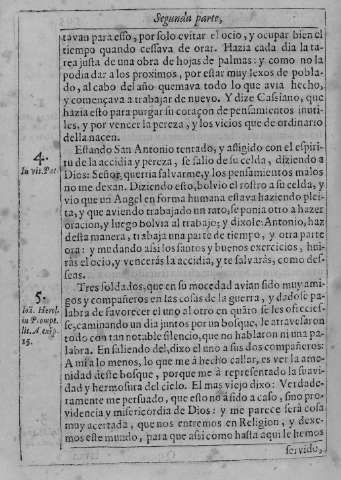 Segunda parte,
tavan para esso, por solo evitar el ocio, y ocupar bien el
tiempo quando cessava de orar. Hazia cada dia la ta-
rea justa de una obra de hojas de palmas: y como no la
podia dar a los proximos, por estar muy lexos de pobla-
do, al cabo del año quemava todo lo que avia hecho,
y començava a trabajar de nuevo. Y dize Cassiano, que
hazia esto para purgar su coraçon de pensamientos inuti-
les, y por vencer la pereza, y los vicios que de ordinario
della nacen.
4.
In vit. Pat
Estando San Antonio tentado, y afligido con el espiri-
tu de la accidia y pereza, se salio de su celda, diziendo a
Dios: Señor, querria salvarme, y los pensamientos malos
no me dexan. Diziendo esto, bolvio el rostro a su celda, y
vio que un Angel en forma humana estava haziendo plei-
ta, y que aviendo trabajado un rato, se ponia otro a hazer
oracion, y luego bolvia al trabajo; y dixole: Antonio, haz
desta manera, trabaja una parte de tiempo, y otra parte
ora: y mudando assi los santos y buenos exercicios, hui-
rás el ocio, y vencerás la accidia, y te salvarás, como des-
seas.
5.
Ioã. Herol.
in P. cuppt.
lit. A. exẽp.
15.
Tres soldados, que en su mocedad avian sido muy ami-
gos y compañeros en las cosas de la guerra, y dadose pa-
labra de favorecer el uno al otro en quãto se les ofrecies-
se, caminando un dia juntos por un bosque, le atravesaron
todo con tan notable silencio, que no hablaron ni una pa-
labra. En saliendo del, dixo el uno a sus dos compañeros:
A mi a lo menos, lo que me à hecho callar, es ver la ame-
nidad deste bosque, porque me à representado la suavi-
dad y hermosura del cielo. El mas viejo dixo: Verdade-
ramente me persuado, que esto no à sido a caso, sino pro-
videncia y misericordia de Dios: y me parece será cosa
muy acertada, que nos entremos en Religion, y dexe-
mos este mundo, para que assi como hasta aqui le hemos
servido,